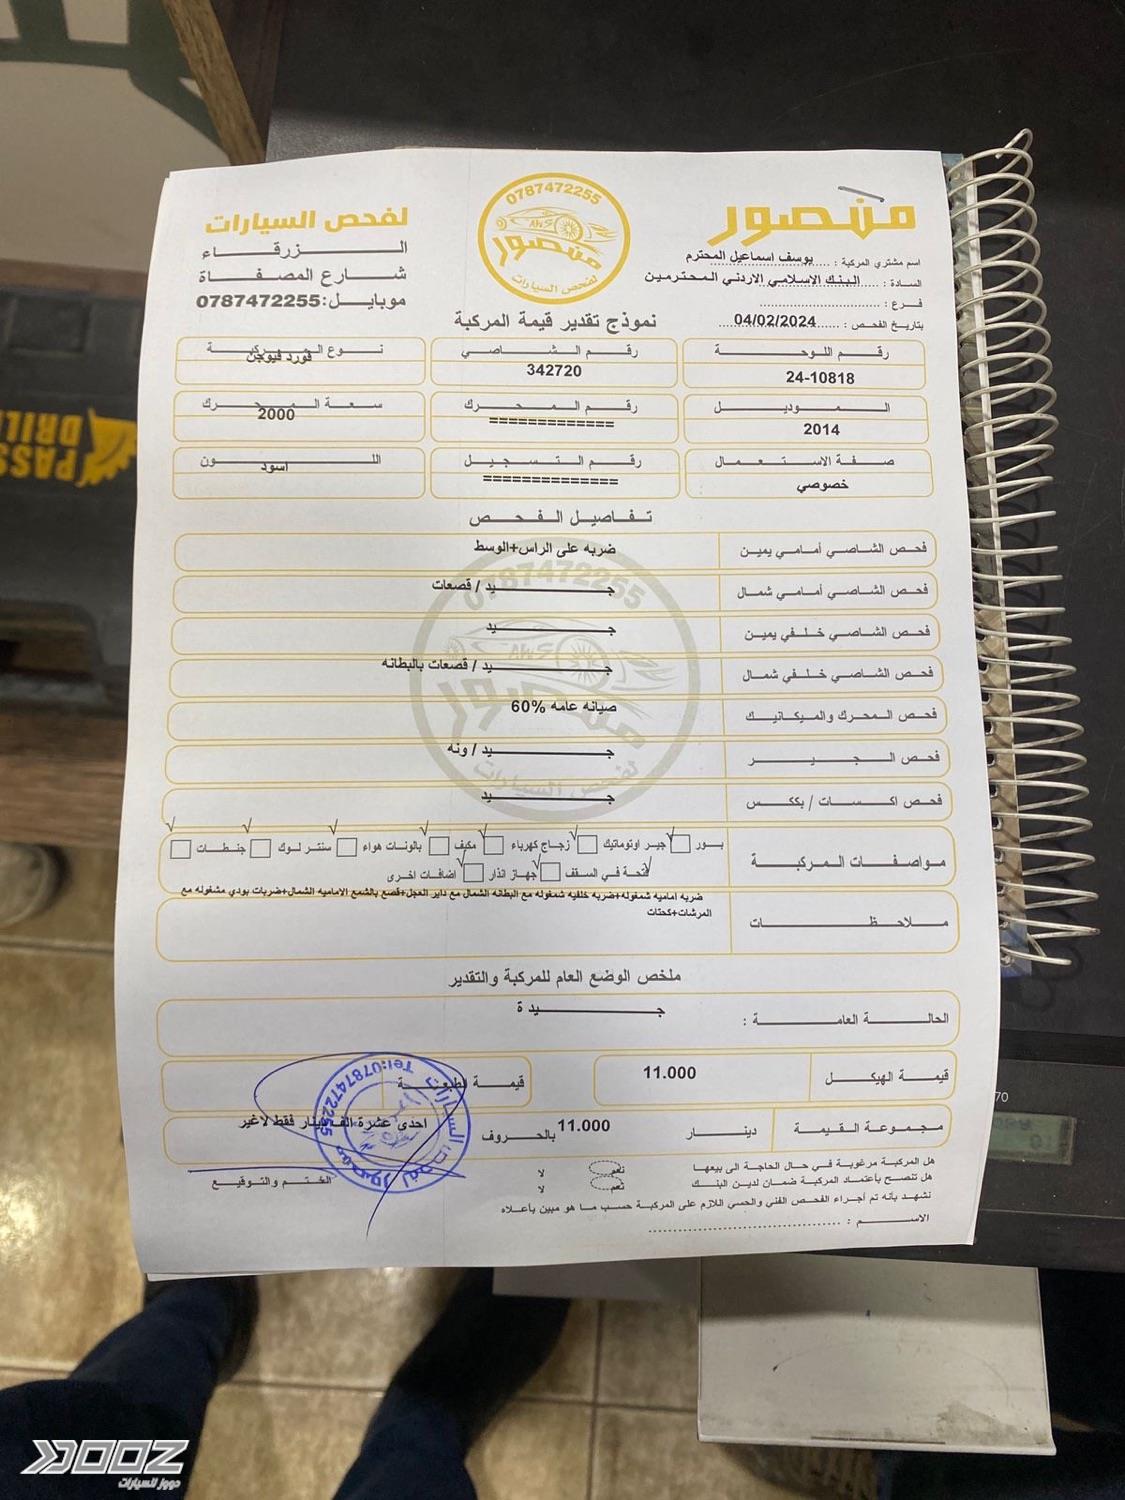 منصور
لفحص السيارات
الزرقاء
شارع المصفاة
موبايل:0787472255
0787472255
منصور
لفحص السيارات
اسم مشتري المركبة : يوسف اسماعيل المحترم
السادة : البنك الاسلامي الاردني المحترمين
فرع :
بتاريخ الفحص : 04/02/2024
نموذج تقدير قيمة المركبة
رقم اللوحة
24-10818
رقم الشاصي
342720
نوع المركبة
فورد فيوجن
الموديل
2014
رقم المحرك
=============
سعة المحرك
2000
صفة الاستعمال
خصوصي
رقم التسجيل
==============
اللون
اسود
تفاصيل الفحص
فحص الشاصي أمامي يمين ضربه على الراس+الوسط
فحص الشاصي أمامي شمال جيد / قصعات
فحص الشاصي خلفي يمين جيد
فحص الشاصي خلفي شمال جيد / قصعات بالبطانه
فحص المحرك والميكانيك صيانه عامه 60%
فحص الجير جيد / ونه
فحص اكسات / بككس جيد
مواصفات المركبة
بور جير اوتوماتيك زجاج كهرباء مكيف بالونات هواء سنتر لوك جنطات
فتحة في السقف جهاز انذار اضافات اخرى
ملاحظات
ضربه اماميه شمغوله+ضربه خلفيه شمغوله مع البطانه الشمال مع داير العجل+قصع بالشمع الاماميه الشمال+ضربات بودي مشغوله مع
المرشات+كحتات
ملخص الوضع العام للمركبة والتقدير
الحالة العامة : جيدة
قيمة الهيكل 11.000 قيمة الطبعة
مجموعة القيمة دينار 11.000 بالحروف احدى عشرة الف دينار فقط لاغير
هل المركبة مرغوبة في حال الحاجة الى بيعها نعم لا
هل تنصح بأعتماد المركبة ضمان لدين البنك نعم لا
نشهد بأنه تم أجراء الفحص الفني والحسي اللازم على المركبة حسب ما هو مبين بأعلاه
الاسم :
الختم والتوقيع
Tel:0787472255
منصور لفحص السيارات
PASS
DRILL
70
DOOZ
دووز للسيارات